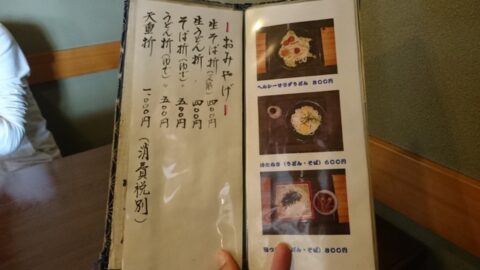 おみやげ
生そば折(二人前) 四〇〇円
生うどん折 四〇〇円
そば折(ゆで) 五〇〇円
うどん折(ゆで) 五〇〇円
天重折 一、〇〇〇円
(消費税別)
ヘルシーサラダうどん 800円
冷たぬき(うどん・そば) 600円
うどん・そば) 800円